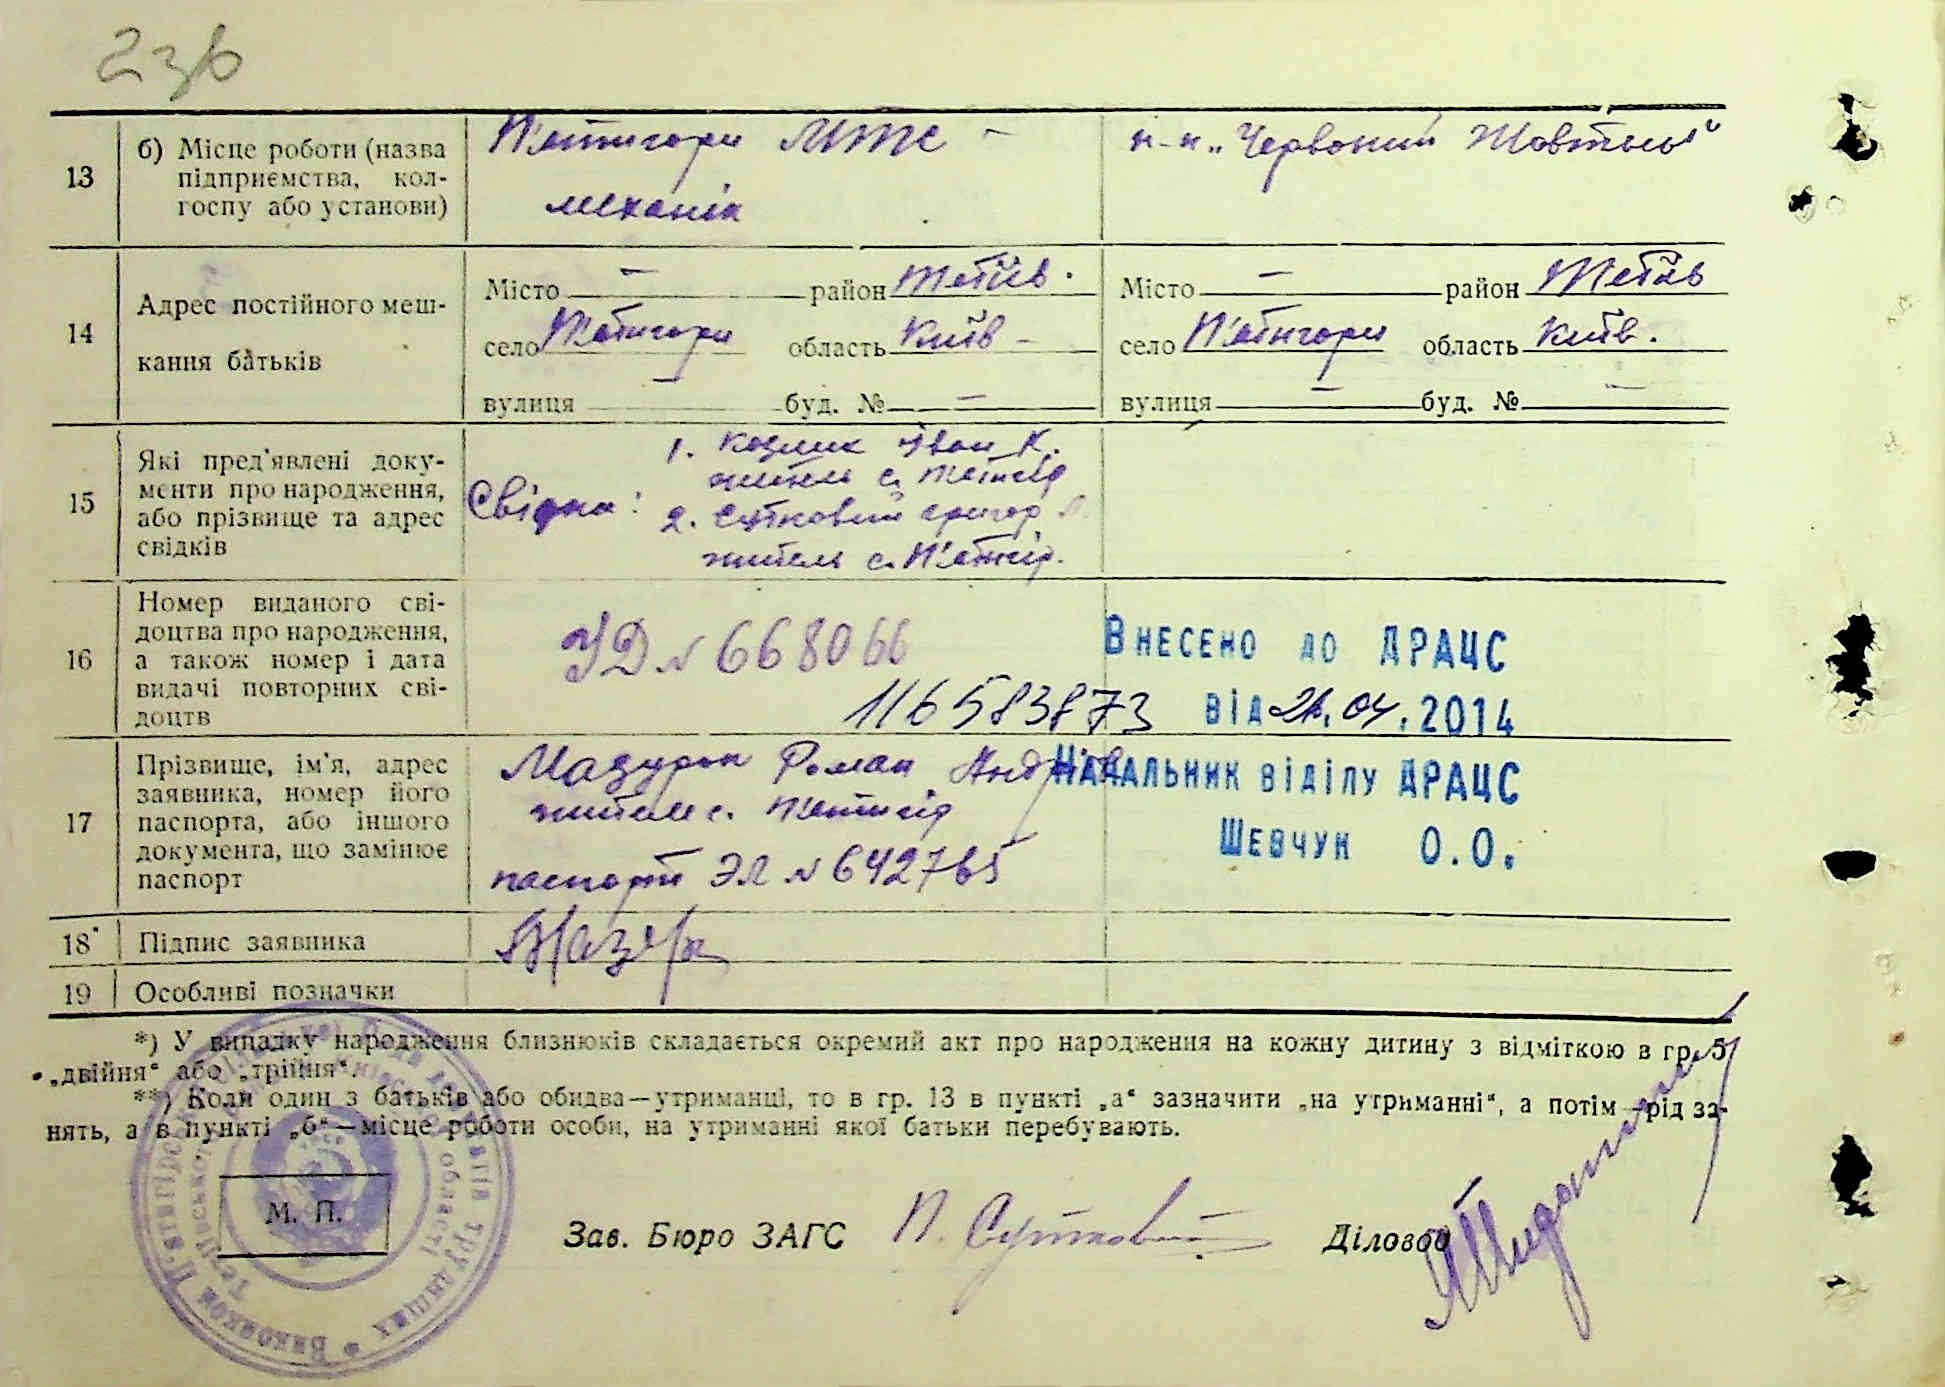 236
13
б) Місце роботи (назва
підприємства, кол-
госпу або установи)
П'ятигори МТС –
механік
к-п „Червоний Жовтень"
14
Адрес постійного меш-
кання батьків
Місто – район Тетіїв.
село П'ятигори область Київ –
вулиця – буд. № –
Місто – район Тетіїв
село П'ятигори область Київ.
вулиця – буд. № –
15
Які пред'явлені доку-
менти про народження,
або прізвище та адрес
свідків
Свідки:
1. Козлик Іван К.
житель с. П'ятигір
2. Сутковий Григор
житель с. П'ятигір.
16
Номер виданого сві-
доцтва про народження,
а також номер і дата
видачі повторних сві-
доцтв
УД № 668066
116583873
Внесено до ДРАЦС
від 24.04.2014
Начальник відділу ДРАЦС
Шевчук О.О.
17
Прізвище, ім'я, адрес
заявника, номер його
паспорта, або іншого
документа, що замінює
паспорт
Мазурок Роман
житель с. П'ятигір
паспорт ЭЛ № 642765
18
Підпис заявника
19
Особливі позначки
*) У випадку народження близнюків складається окремий акт про народження на кожну дитину з відміткою в гр. 5
„двійня“ або „трійня“.
**) Коли один з батьків або обидва—утриманці, то в гр. 13 в пункті „а“ зазначити „на утриманні“, а потім—рід за-
нять, а в пункті „б“—місце роботи особи, на утриманні якої батьки перебувають.
М. П.
Зав. Бюро ЗАГС П. Сутковий
Діловод